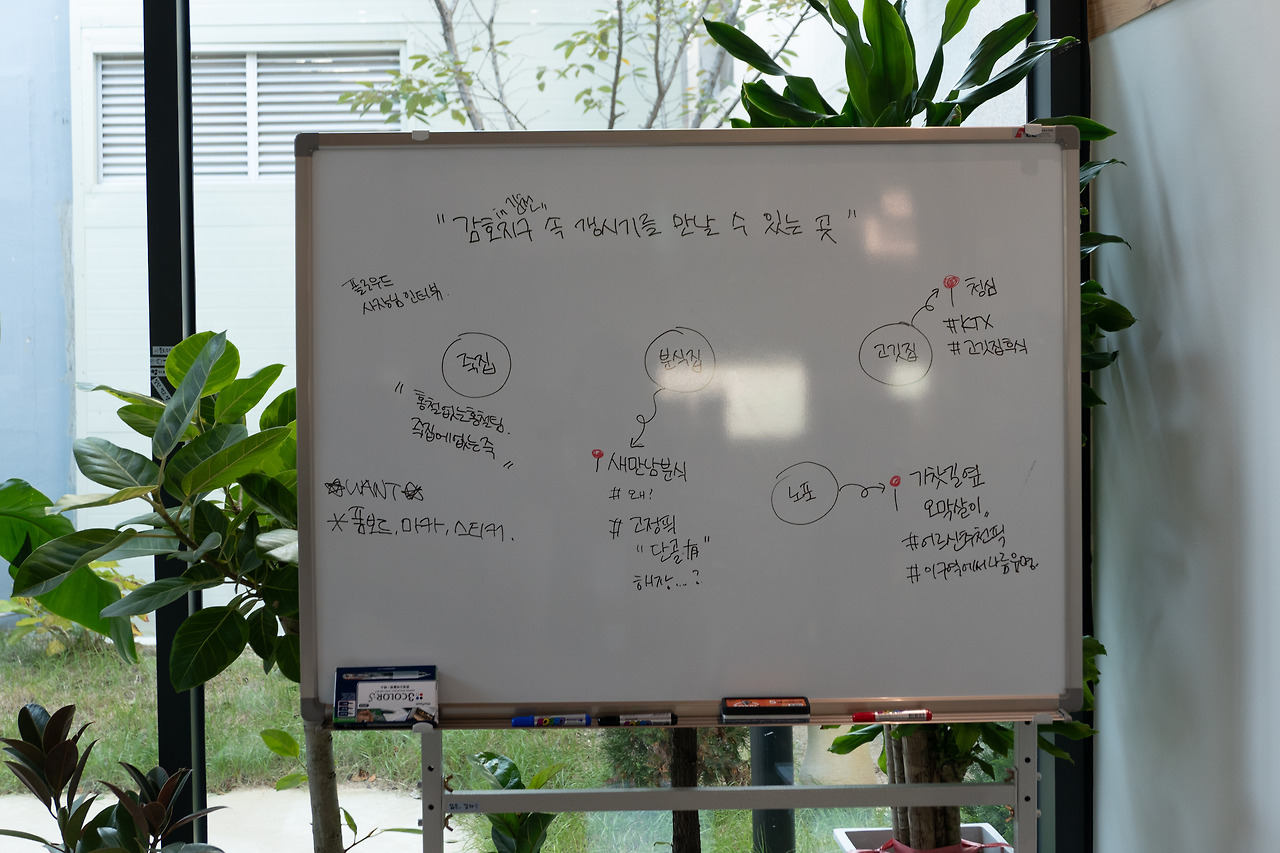 in 김천
"감호지구 속 갱시기를 만날 수 있는 곳"
플로우드
사장님 인터뷰.
죽집
"홍철없는홍철팀.
죽집에없는죽"
분식집
새만남분식
#왜?
#고정픽
"단골有"
해장...?
고깃집
청심
#KTX
#고깃집후식
노포
가찻길옆
오막살이.
#어르신추천픽
#이구역에서나름유명.
☆WANT☆
*폼보드, 마카, 스티커.
3COLOR